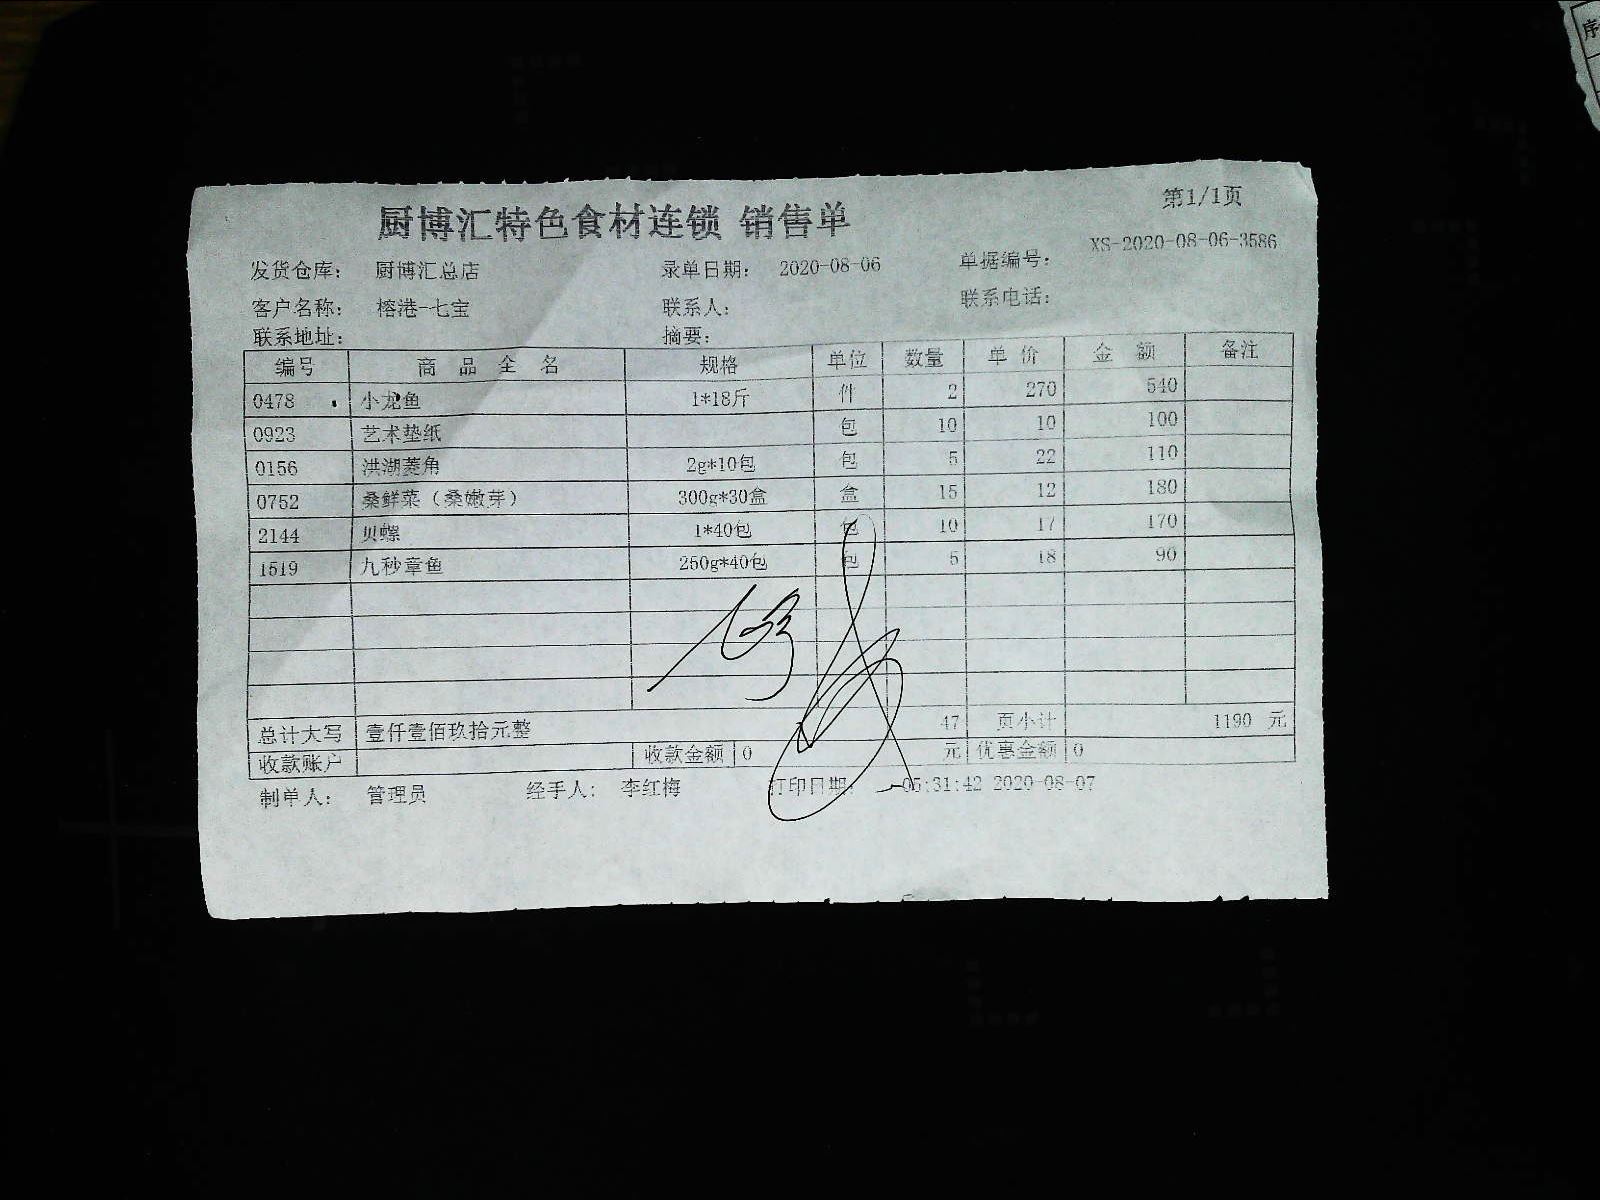 序
第1/1页
厨博汇特色食材连锁 销售单
发货仓库： 厨博汇总店 录单日期： 2020-08-06 单据编号： XS-2020-08-06-3586
客户名称： 榕港-七宝 联系人： 联系电话：
联系地址： 摘要：
编号 商 品 全 名 规格 单位 数量 单 价 金 额 备注
0478 小龙鱼 1*18斤 件 2 270 540
0923 艺术垫纸 包 10 10 100
0156 洪湖菱角 2g*10包 包 5 22 110
0752 桑鲜菜（桑嫩芽） 300g*30盒 盒 15 12 180
2144 贝螺 1*40包 包 10 17 170
1519 九秒章鱼 250g*40包 包 5 18 90
总计大写 壹仟壹佰玖拾元整 47 页小计 1190 元
收款账户 收款金额 0 元 优惠金额 0
制单人： 管理员 经手人： 李红梅 打印日期： 05:31:42 2020-08-07